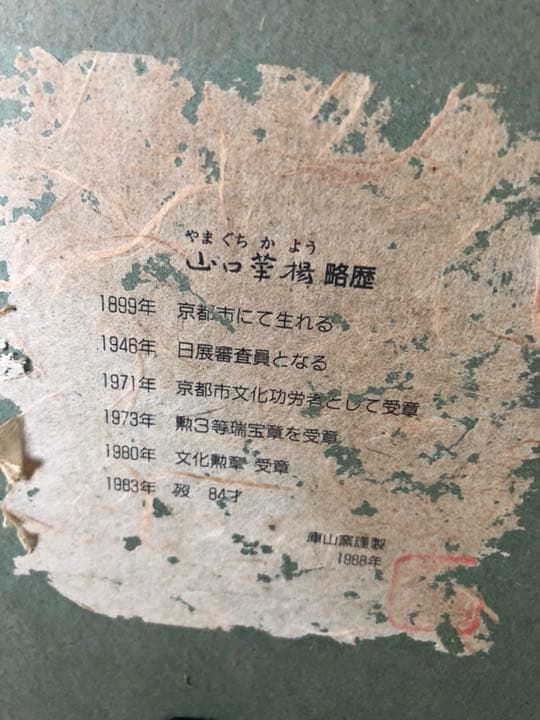 やまぐち か よう
山口華楊 略歴
1899年 京都市にて生れる
1946年 日展審査員となる
1971年 京都市文化功労者として受章
1973年 勲3等瑞宝章を受章
1980年 文化勲章 受章
1983年 歿 84才
庫山窯謹製
1988年